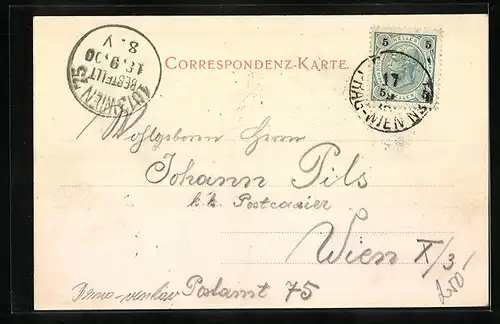 WIEN 75
BESTELLT
18.9.00
8.V
CORRESPONDENZ-KARTE.
5 5
HELLER HELLER
17
PRAG-WIEN
Wohlgeboren Herrn
Johann Pils
k.k. Postcassier
Wien X/3
Postamt 75